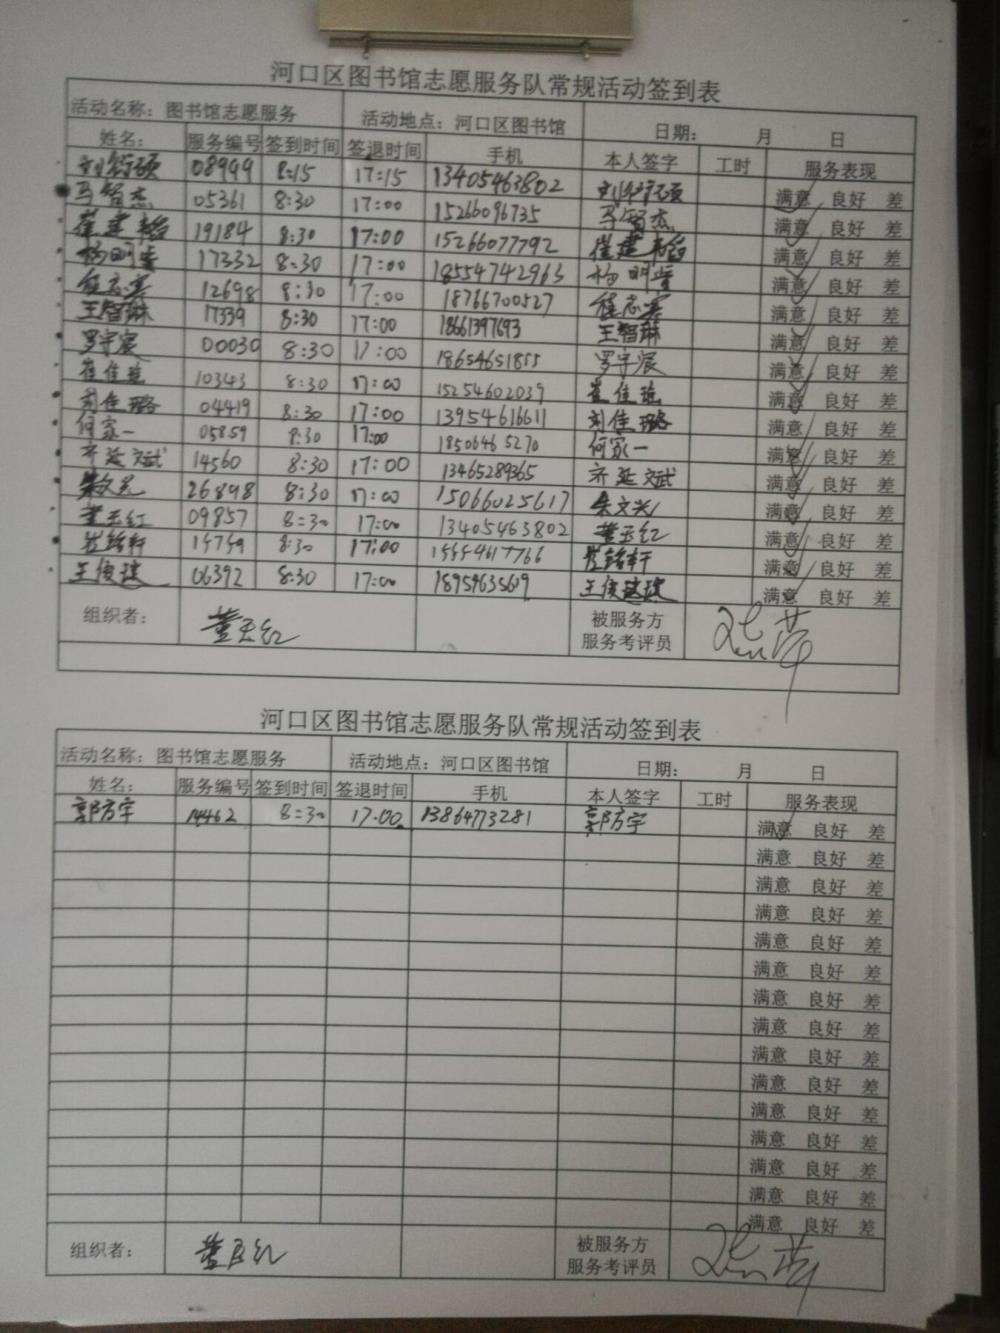 河口区图书馆志愿服务队常规活动签到表
活动名称：图书馆志愿服务 活动地点：河口区图书馆 日期： 月 日
姓名： 服务编号 签到时间 签退时间 手机 本人签字 工时 服务表现
08999 8:15 17:15 13405463802 满意 良好 差
马智杰 05361 8:30 17:00 15266096735 马智杰 满意 良好 差
崔建韬 19184 8:30 17:00 15266077792 崔建韬 满意 良好 差
17332 8:30 17:00 18554742963 满意 良好 差
12698 8:30 17:00 18766700527 满意 良好 差
王智琳 17339 8:30 17:00 18661397693 王智琳 满意 良好 差
罗宇宸 00030 8:30 17:00 18654651855 罗宇宸 满意 良好 差
崔佳 10343 8:30 17:00 15254602039 崔佳 满意 良好 差
刘佳璐 04419 8:30 17:00 13954616611 刘佳璐 满意 良好 差
何家一 05859 8:30 17:00 18506465270 何家一 满意 良好 差
齐延斌 14560 8:30 17:00 13465289365 齐延斌 满意 良好 差
朱文兴 26898 8:30 17:00 15066025617 朱文兴 满意 良好 差
董玉红 09857 8:30 17:00 13405463802 董玉红 满意 良好 差
8:30 17:00 满意 良好 差
06392 8:30 17:00 满意 良好 差
组织者： 董玉红 被服务方
服务考评员
河口区图书馆志愿服务队常规活动签到表
活动名称：图书馆志愿服务 活动地点：河口区图书馆 日期： 月 日
姓名： 服务编号 签到时间 签退时间 手机 本人签字 工时 服务表现
郭方宇 14462 8:30 17:00 13864773281 郭方宇 满意 良好 差
满意 良好 差
满意 良好 差
满意 良好 差
满意 良好 差
满意 良好 差
满意 良好 差
满意 良好 差
满意 良好 差
满意 良好 差
满意 良好 差
满意 良好 差
满意 良好 差
满意 良好 差
满意 良好 差
组织者： 董玉红 被服务方
服务考评员